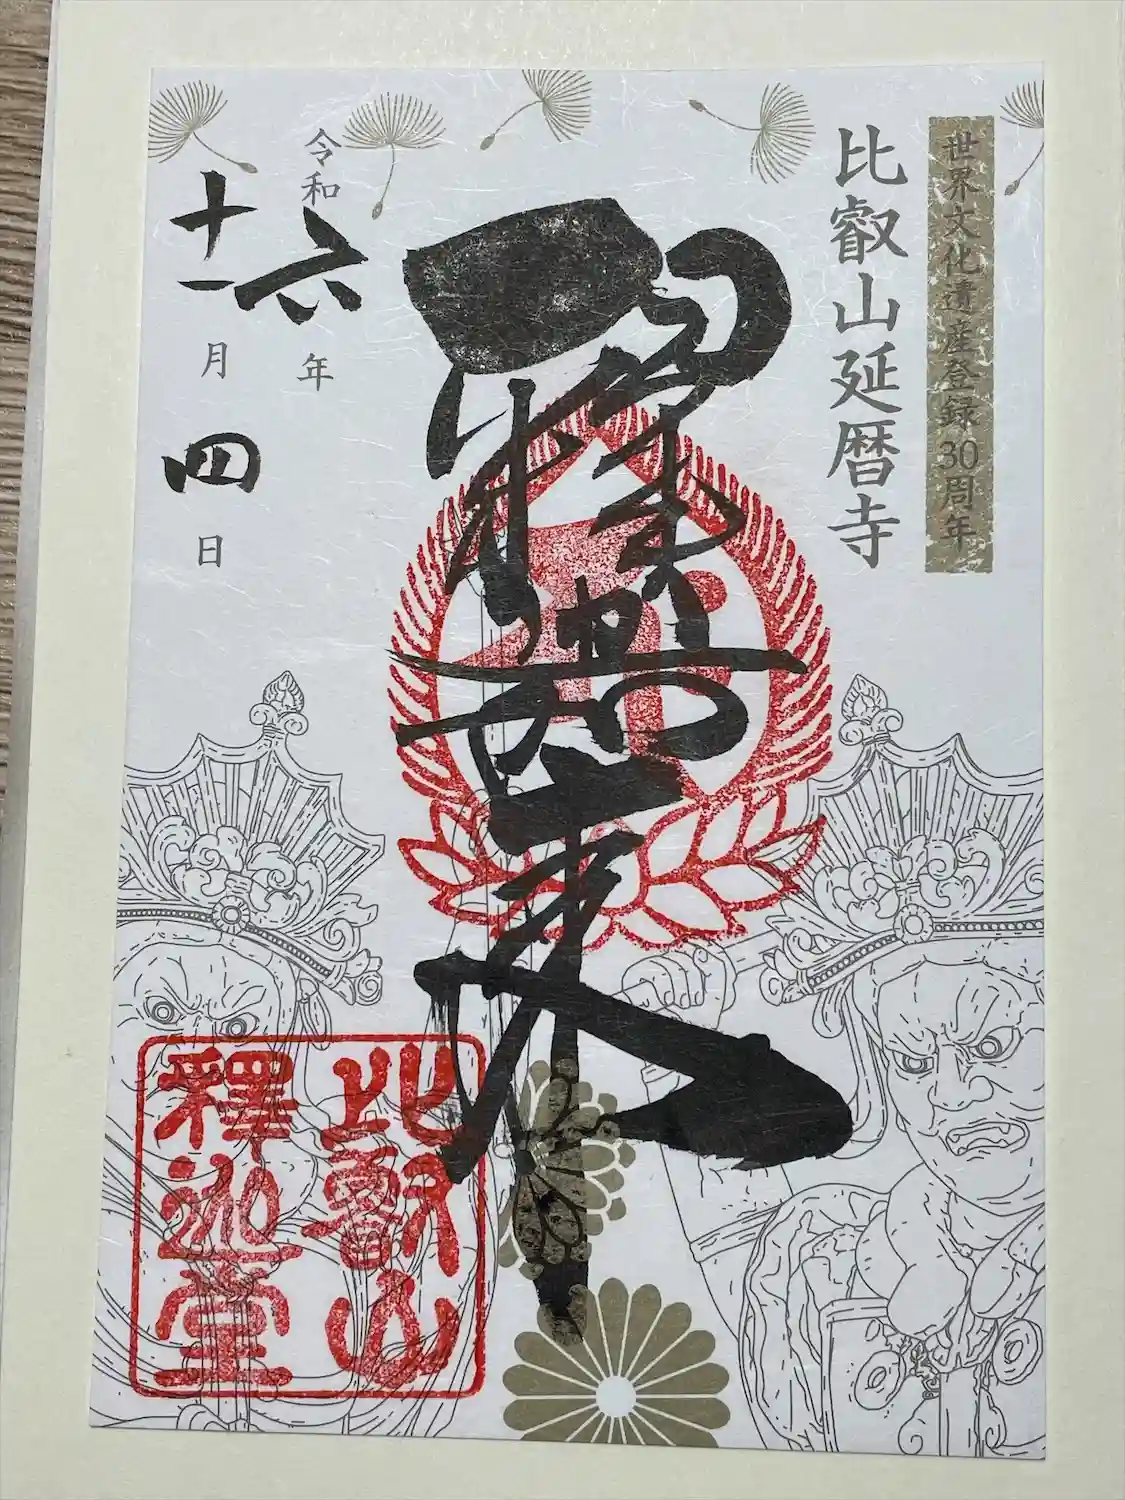 世界文化遺産登録30周年
比叡山延暦寺
釋迦如来
令和六年
十一月四日
比叡山
釋迦堂